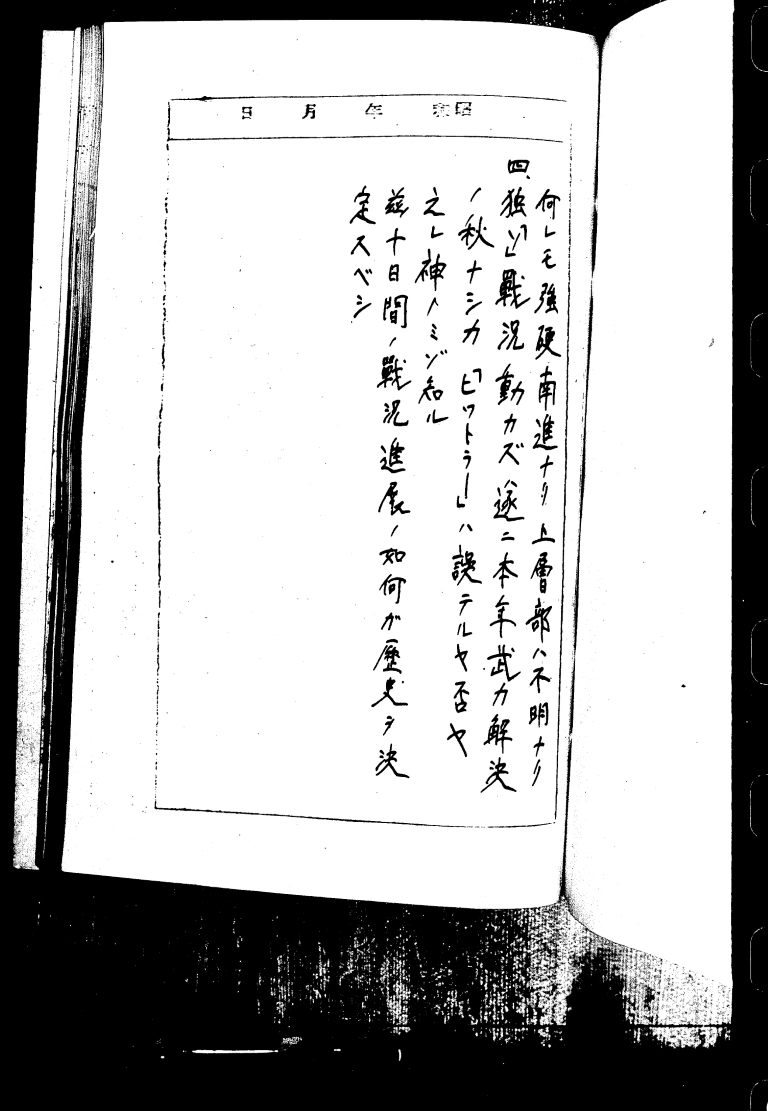 昭和 年 月 日
何レモ強硬南進ナリ上層部ハ不明ナリ
四、独「ソ」戰況動カズ遂ニ本年武力解決
ノ秋ナシカ「ヒットラー」ハ誤テルヤ否ヤ
之レ神ノミゾ知ル
茲十日間ノ戰況進展ノ如何ガ歴史ヲ決
定スベシ